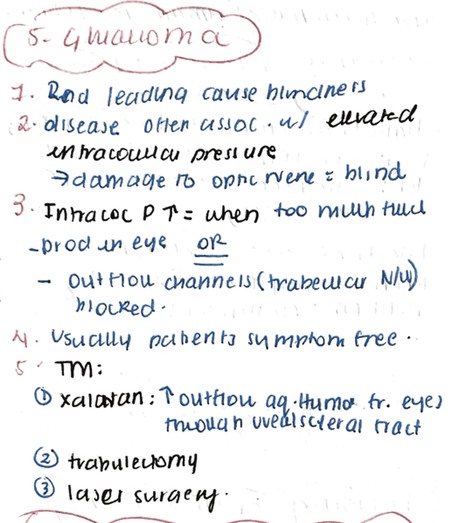 5- Glaucoma
1. 2nd leading cause blindness
2. disease often assoc. w/ elevated
intraocular pressure
→damage to optic nerve = blind
3. Intraoc P ↑ = when too much fluid
-prod in eye OR
- outflow channels (trabecular N/W)
blocked.
4. Usually patients symptom free.
5. TM:
① xalatan: ↑ outflow aq. Humor fr. eyes
through uvealscleral tract
② trabulectomy
③ laser surgery.